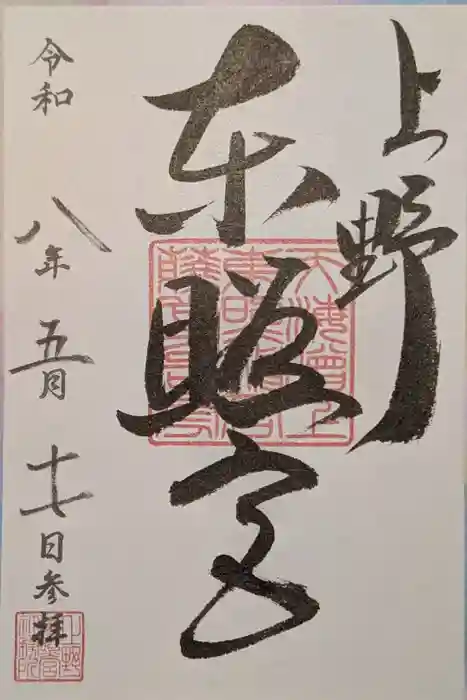 上野
東照宮
令和八年五月十七日参拝